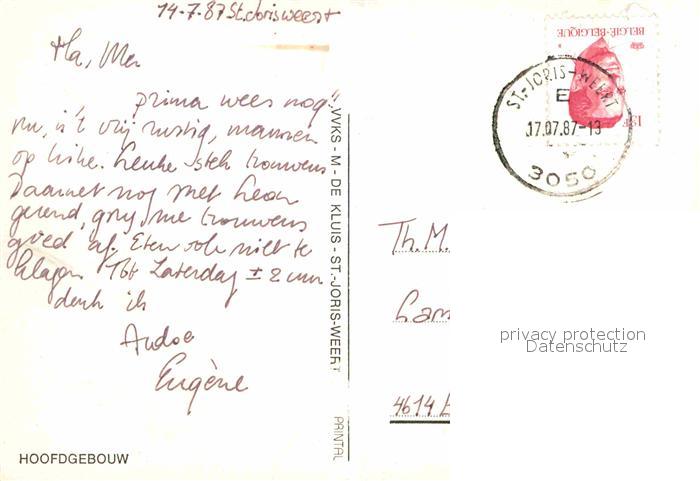 14-7-87 St. Jorisweert
Ha, Ma
prima wees nog
nu, is 't vrij rustig, mannen
op hike. Leuke stek trouwens
Daarnet nog met Leon
gerend, ging me trouwens
goed af. Eten ook niet te
klagen. Tot Zaterdag ± 2 uur
denk ik
Eugène
HOOFDGEBOUW
VVKS - M - DE KLUIS - ST.-JORIS-WEERT
PRINTAL
BELGIE-BELGIQUE
13F
ST.-JORIS-WEERT
E
17.07.87-13
3050
Th. M.
4614
privacy protection
Datenschutz